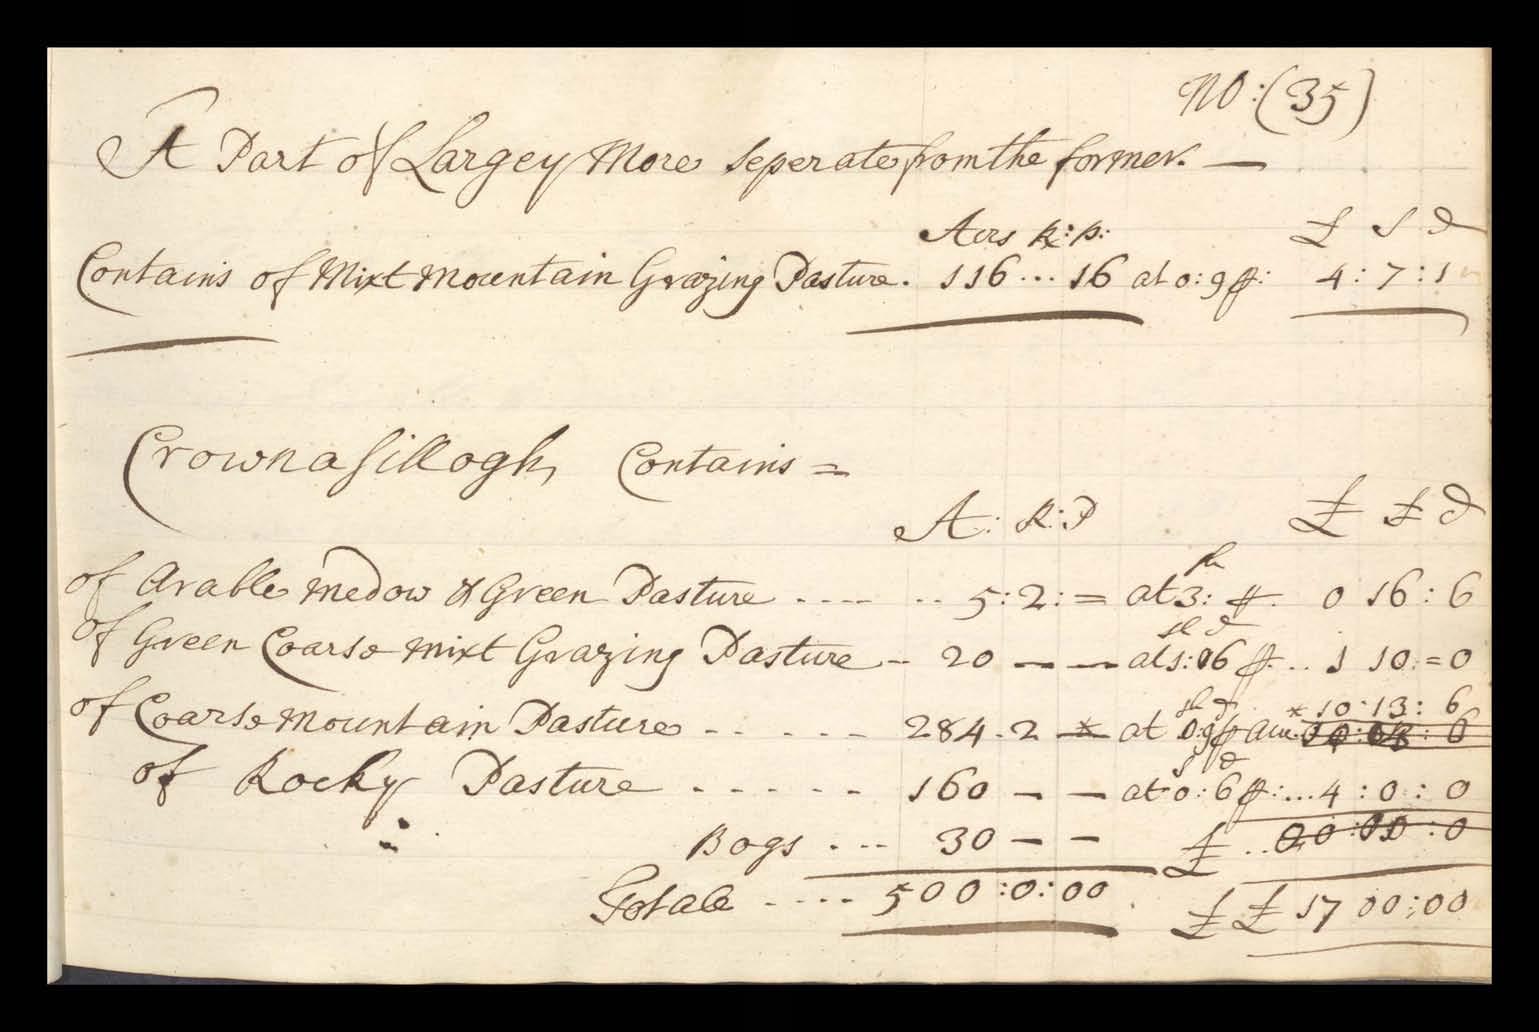 No: (35)
A Part of Largey More seperate from the former. —
Acrs R: p: £ S D
Contains of Mixt Mountain Grazing Pasture. 116 ... 16 at 0:9 p: 4:7:1
Crownasillogh Contains =
A: R: P £ S D
of Arable Medow & Green Pasture .... .. 5:2:= at 3: p. 0 16:6
sh d
of Green Coarse Mixt Grazing Pasture - 20 — — at 1:06 p... 1 10:=0
sh d * 10:13:6
of Coarse Mountain Pasture ..... 284.2 — at 0:9 p
s d
of Rocky Pasture ...... 160 — — at 0:6 p:...4:0:0
Bogs ... 30 — — £
Totale .... 500:0:00 £ £ 17 00:00